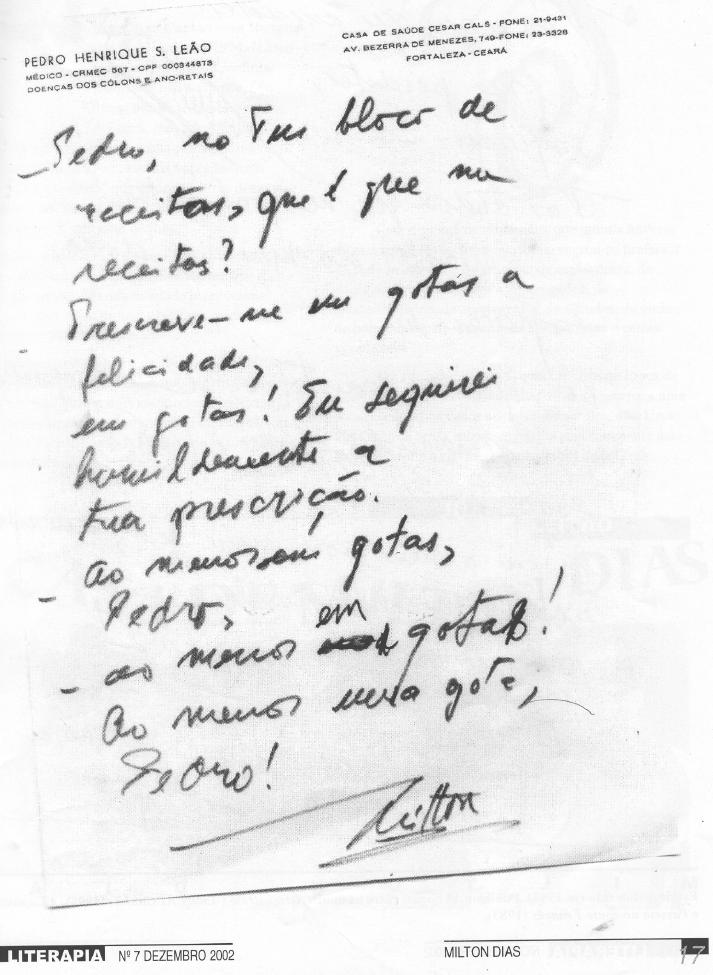 PEDRO HENRIQUE S. LEÃO
MÉDICO - CRMEC 567 - CPF 000344873
DOENÇAS DOS CÓLONS E ANO-RETAIS
CASA DE SAÚDE CESAR CALS - FONE: 21-9431
AV. BEZERRA DE MENEZES, 749-FONE: 23-3328
FORTALEZA - CEARÁ
Pedro, no teu bloco de
receitas, que é que me
receitas?
Prescreve-me em gotas a
felicidade,
em gotas! Eu seguirei
humildemente a
tua prescrição.
ao menos em gotas,
- Pedro,
- ao menos em gotas!
Ao menos uma gota,
Pedro!
Milton
LITERAPIA Nº 7 DEZEMBRO 2002
MILTON DIAS 17